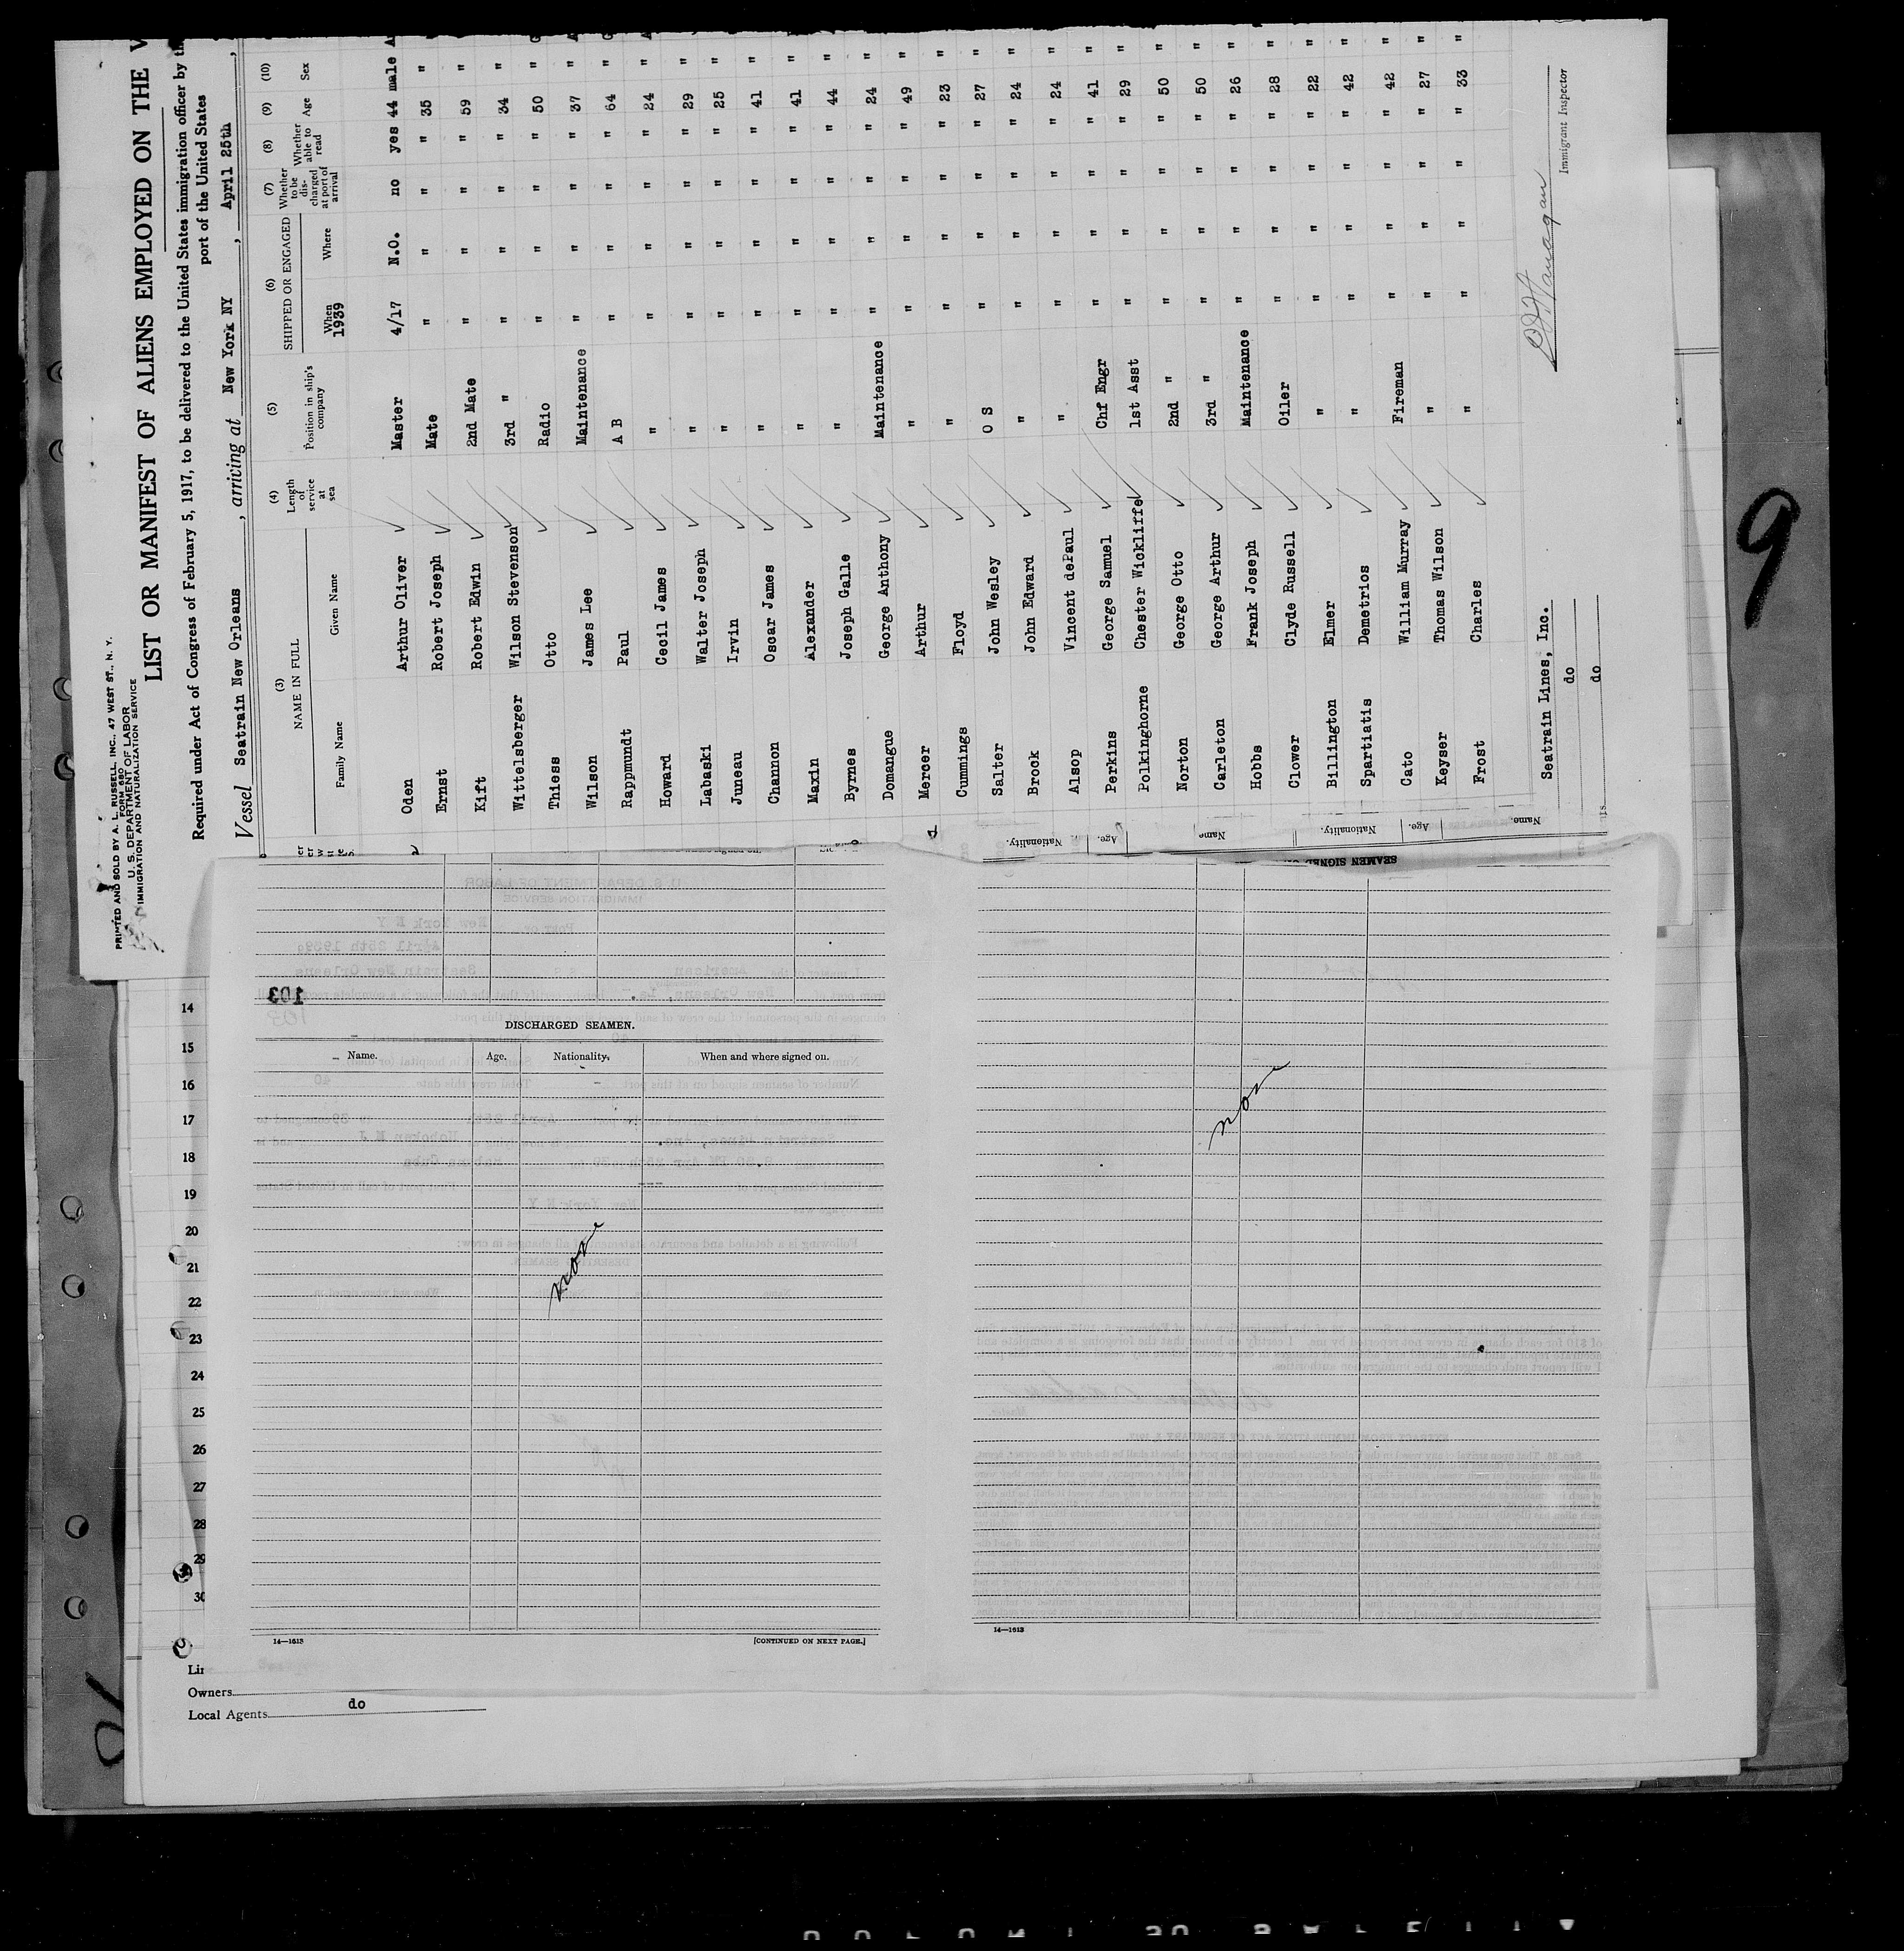 PRINTED AND SOLD BY A. L. RUSSELL, INC., 47 WEST ST., N. Y.
FORM 680
U. S. DEPARTMENT OF LABOR
IMMIGRATION AND NATURALIZATION SERVICE
LIST OR MANIFEST OF ALIENS EMPLOYED ON THE
Required under Act of Congress of February 5, 1917, to be delivered to the United States immigration officer by
port of the United States
Vessel Seatrain New Orleans, arriving at New York NY, April 25th,
(3) (4) (5) (6) (7) (8) (9) (10)
NAME IN FULL Length of service at sea Position in ship's company SHIPPED OR ENGAGED Whether to be discharged at port of arrival Whether able to read Age Sex
Family Name Given Name When 1939 Where
Oden Arthur Oliver Master 4/17 N.O. no yes 44 male
Ernst Robert Joseph Mate " " " " 35 "
Kift Robert Edwin 2nd Mate " " " " 59 "
Wittelsberger Wilson Stevenson 3rd " " " " " 34 "
Thiess Otto Radio " " " " 50 "
Wilson James Lee Maintenance " " " " 37 "
Rappmundt Paul A B " " " " 64 "
Howard Cecil James " " " " " 24 "
Labaski Walter Joseph " " " " " 29 "
Juneau Irvin " " " " " 25 "
Channon Oscar James " " " " " 41 "
Maxin Alexander " " " " " 41 "
Byrnes Joseph Galle " " " " " 44 "
Domangue George Anthony Maintenance " " " " 24 "
Mercer Arthur " " " " " 49 "
Cummings Floyd " " " " " 23 "
Salter John Wesley O S " " " " 27 "
Brock John Edward " " " " " 24 "
Alsop Vincent dePaul " " " " " 24 "
Perkins George Samuel Chf Engr " " " " 41 "
Polkinghorne Chester Wickliffe 1st Asst " " " " 29 "
Norton George Otto 2nd " " " " " 50 "
Carleton George Arthur 3rd " " " " " 50 "
Hobbs Frank Joseph Maintenance " " " " 26 "
Clower Clyde Russell Oiler " " " " 28 "
Billington Elmer " " " " " 22 "
Spartiatis Demetrios " " " " " 42 "
Cato William Murray Fireman " " " " 42 "
Keyser Thomas Wilson " " " " " 27 "
Frost Charles " " " " " 33 "
Seatrain Lines, Inc.
do
do
Immigrant Inspector
9
Nationality. Age. Name Nationality. Age. Name.
103
DISCHARGED SEAMEN.
Name. Age. Nationality. When and where signed on.
none
none
14—1613
[CONTINUED ON NEXT PAGE.]
14—1613
14
15
16
17
18
19
20
21
22
23
24
25
26
27
28
29
30
Owners
Local Agents do